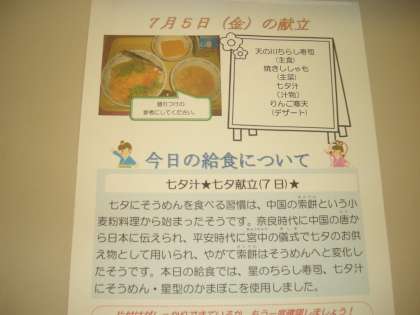 7月5日（金）の献立
天の川ちらし寿司
(主食)
焼きししゃも
(主菜)
七夕汁
(汁物)
りんご寒天
(デザート)
盛りつけの
参考にしてください。
今日の給食について
七夕汁★七夕献立(7日)★
七夕にそうめんを食べる習慣は、中国の索餅という小
麦粉料理から始まったそうです。奈良時代に中国の唐か
ら日本に伝えられ、平安時代に宮中の儀式で七夕のお供
え物として用いられ、やがて索餅はそうめんへと変化し
たそうです。本日の給食では、星のちらし寿司、七夕汁
にそうめん・星型のかまぼこを使用しました。